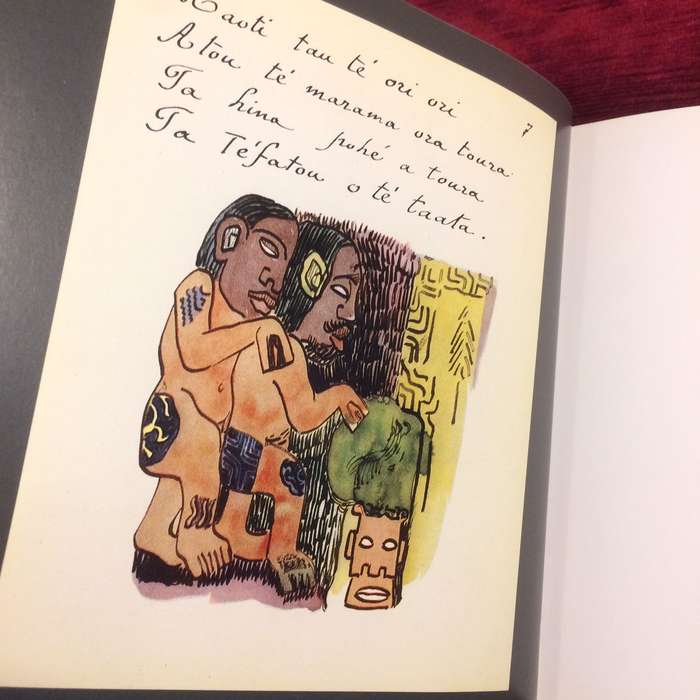 tau té ori ori
7
Atou té marama ora toura.
Ta hina pohé a toura
Ta Téfatou o té taata.